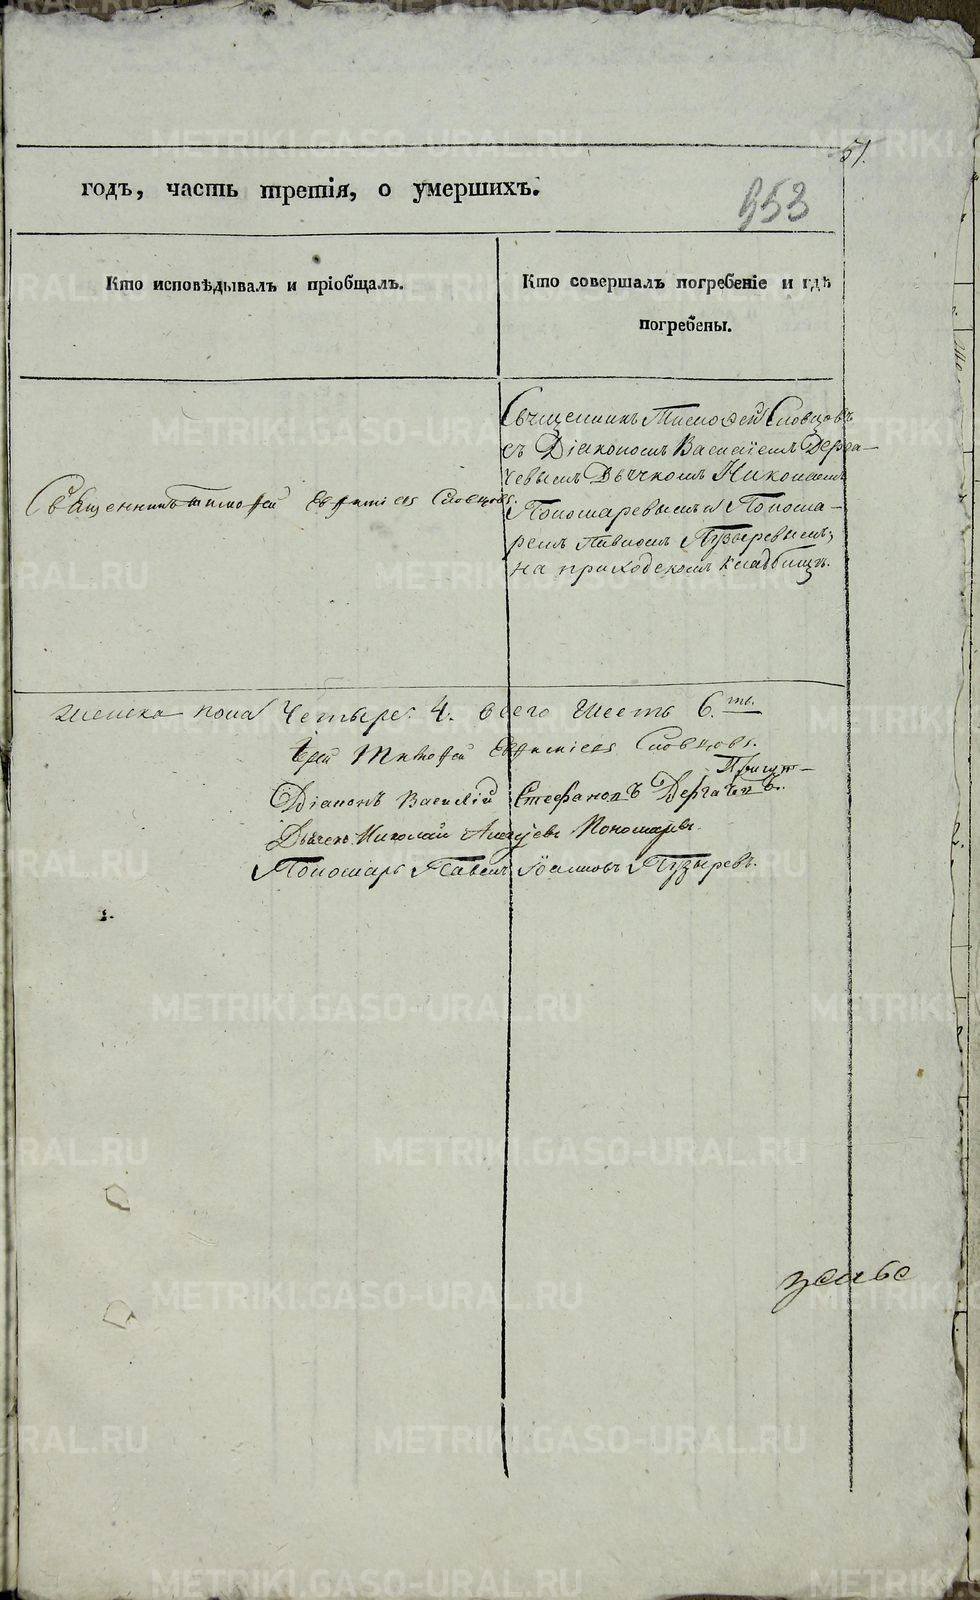 51.
годъ, часть третія, о умершихъ.
953
Кто исповѣдывалъ и пріобщалъ.
Кто совершалъ погребеніе и гдѣ
погребены.
Священникъ Тимофей Евфиміевъ Словцовъ.
Священникъ Тимофей Словцовъ
съ Діакономъ Василіемъ Дерга-
чевымъ Дьячкомъ Николаемъ
Пономаревымъ и Понома-
ремъ Павломъ Пузыревымъ,
на приходскомъ кладбищѣ.
женска пола Четыре. 4. всего Шесть 6.ть.
Іерей Тимофей Евфиміевъ Словцовъ.
Діаконъ Василій Стефановъ Дергачевъ.
Дьячекъ Николай Алексѣевъ Пономаревъ.
Пономарь Павелъ Пузыревъ.
METRIKI.GASO-URAL.RU